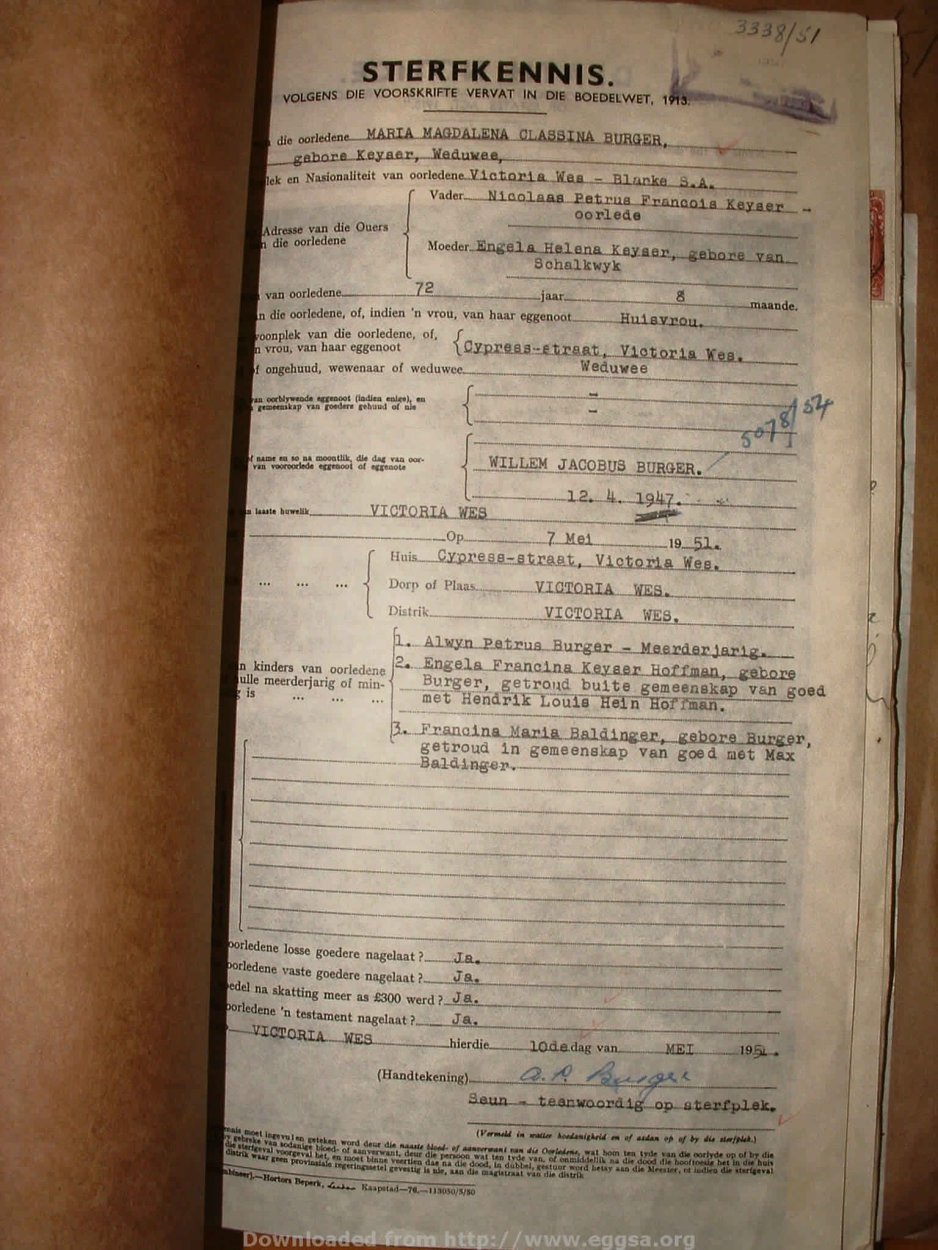 3338/51
STERFKENNIS.
VOLGENS DIE VOORSKRIFTE VERVAT IN DIE BOEDELWET, 1913.
die oorledene MARIA MAGDALENA CLASSINA BURGER,
gebore Keyser, Weduwee,
lek en Nasionaliteit van oorledene Victoria Wes - Blanke S.A.
Vader Nicolaas Petrus Francois Keyser -
oorlede
Adresse van die Ouers
n die oorledene
Moeder Engela Helena Keyser, gebore van
Schalkwyk
van oorledene 72 jaar 8 maande.
n die oorledene, of, indien 'n vrou, van haar eggenoot Huisvrou.
woonplek van die oorledene, of,
n vrou, van haar eggenoot
Cypress-straat, Victoria Wes.
f ongehuud, wewenaar of weduwee Weduwee
van oorblywende eggenoot (indien enige), en
gemeenskap van goedere gehuud of nie
-
-
5078/54
f name en so na moontlik, die dag van oor-
van vooroorlede eggenoot of eggenote
WILLEM JACOBUS BURGER.
12. 4. 1947.
n laaste huwelik VICTORIA WES
Op 7 Mei 1951.
Huis Cypress-straat, Victoria Wes.
... ... ... Dorp of Plaas VICTORIA WES.
Distrik VICTORIA WES.
n kinders van oorledene
ulle meerderjarig of min-
g is ... ... ...
1. Alwyn Petrus Burger - Meerderjarig.
2. Engela Francina Keyser Hoffman, gebore
Burger, getroud buite gemeenskap van goed
met Hendrik Louis Hein Hoffman.
3. Francina Maria Baldinger, gebore Burger,
getroud in gemeenskap van goed met Max
Baldinger.
oorledene losse goedere nagelaat ? Ja.
oorledene vaste goedere nagelaat ? Ja.
edel na skatting meer as £300 werd ? Ja.
oorledene 'n testament nagelaat ? Ja.
VICTORIA WES hierdie 10de dag van MEI 1951.
(Handtekening) A. P. Burger
Seun - teenwoordig op sterfplek.
(Vermeld in watter hoedanigheid en of astan op of by die sterfplek.)
ennis moet ingevul en geteken word deur die naaste bloed- of aanverwant van die Oorledene, wat hom ten tyde van die oorlyde op of by die
by gebreke van sodanige bloed- of aanverwant, deur die persoon wat ten tyde van, of onmiddellik na die dood die hooftoesig het in die huis
die sterfgeval voorgeval het, en moet binne veertien dae na die dood, in dubbel, gestuur word hetsy aan die Meester, of indien die sterfgeval
distrik waar geen provinsiale regeringsetel gevestig is nie, aan die magistraat van die distrik
Hortors Beperk, Kaapstad—76.—113050/5/50
Downloaded from http://www.eggsa.org